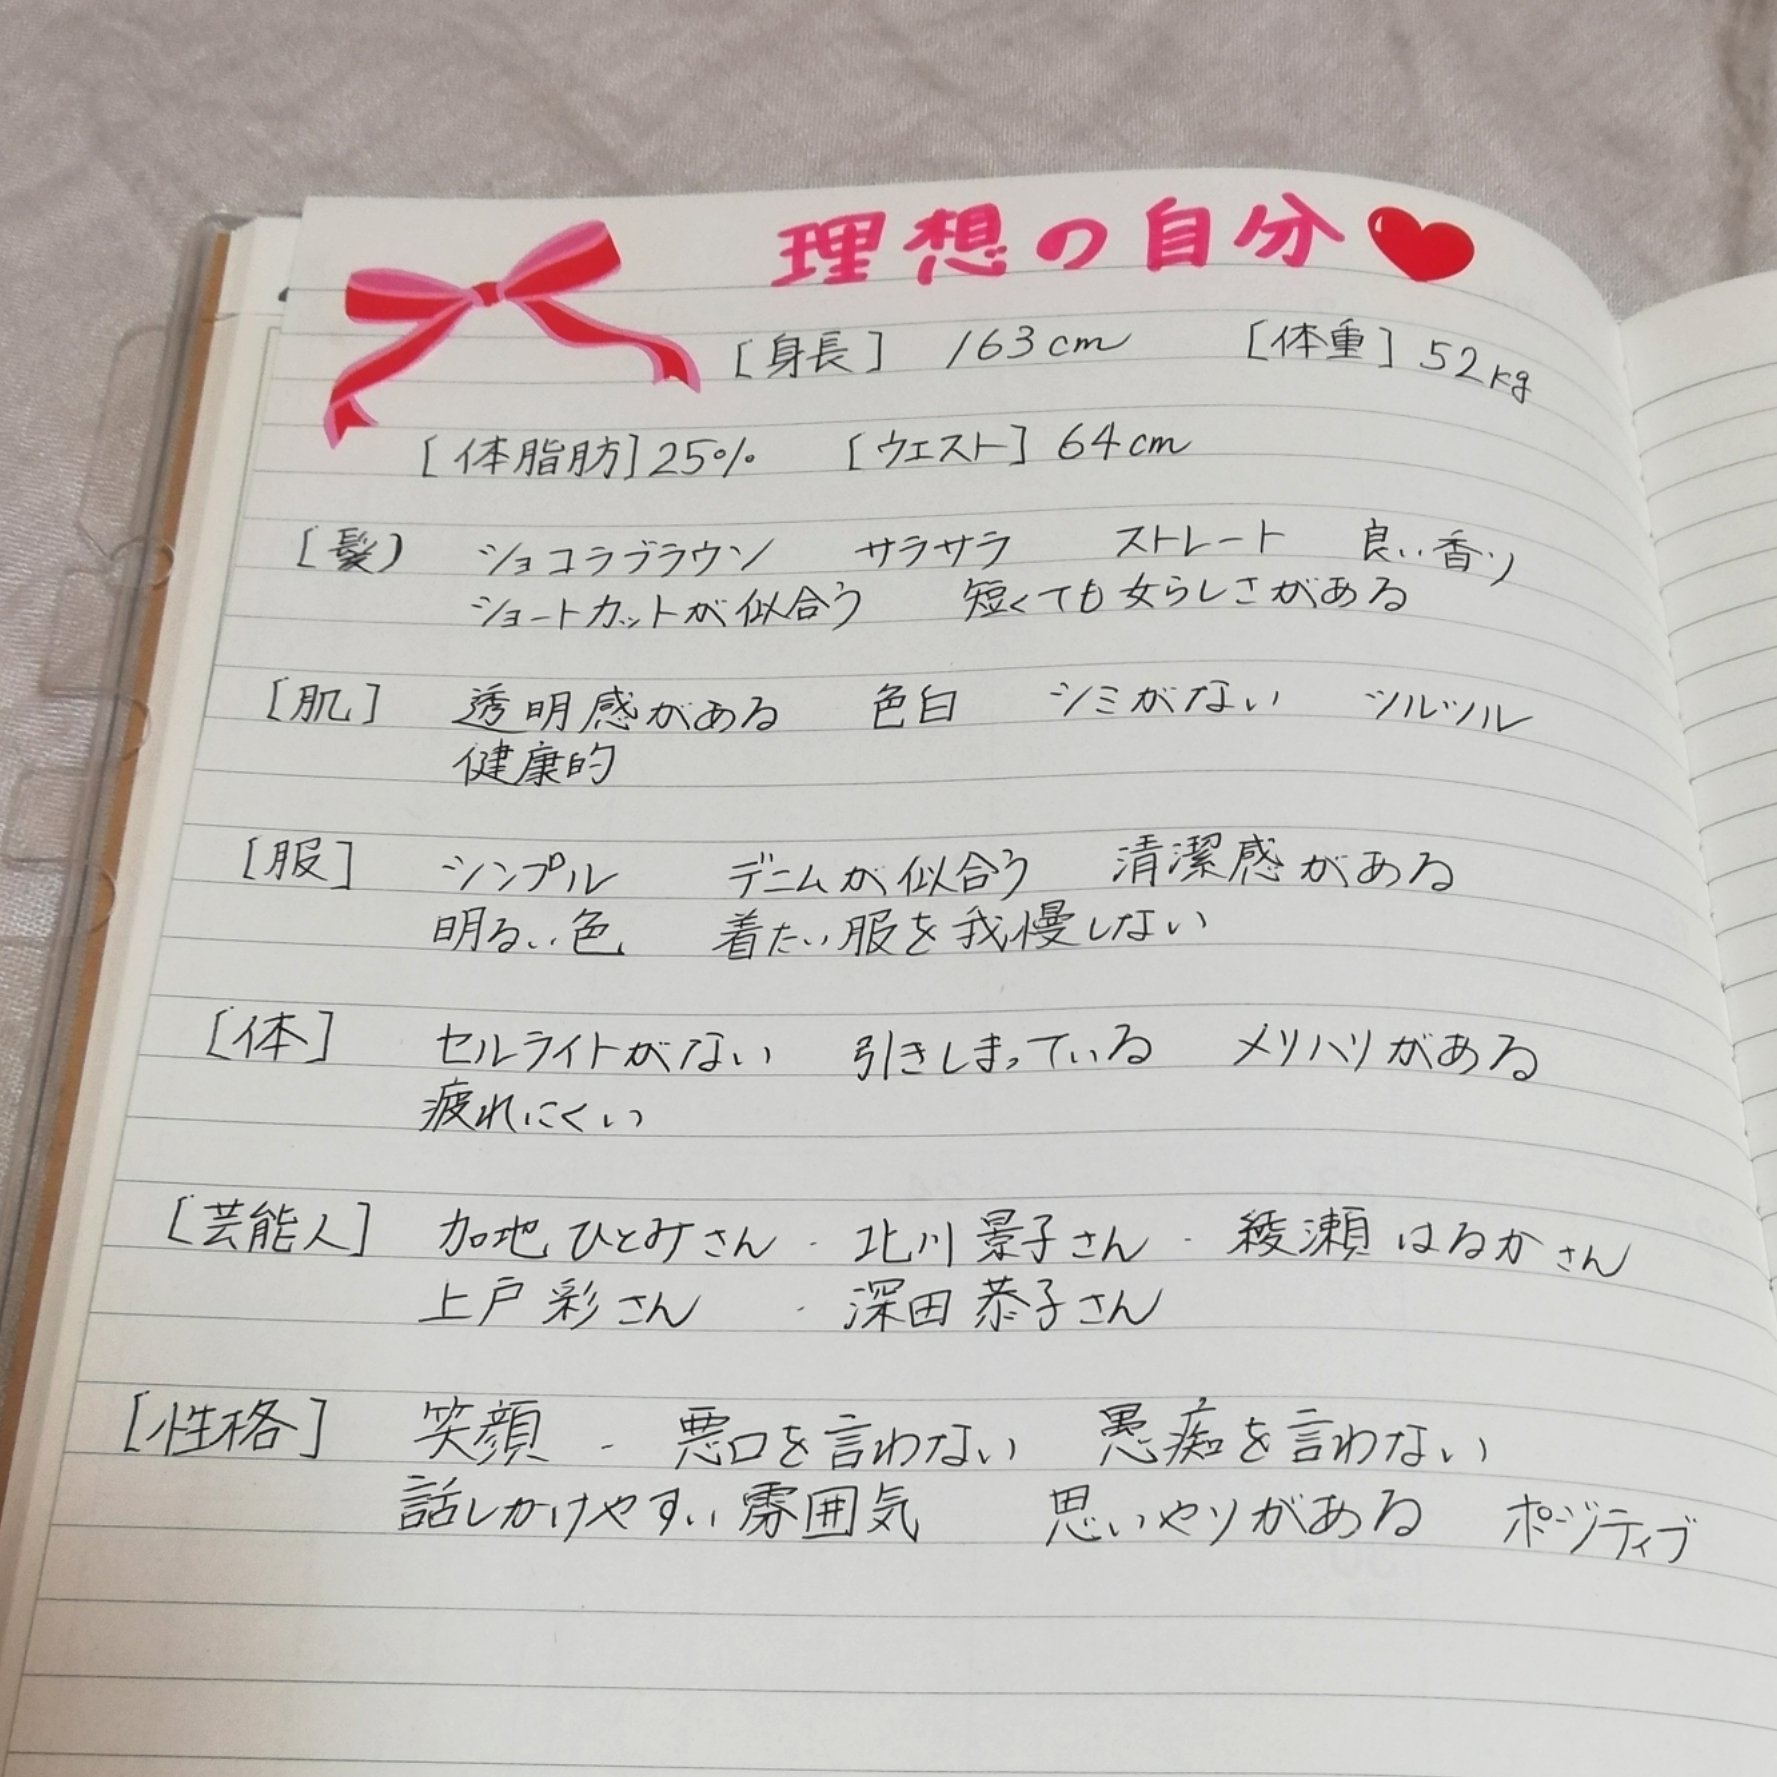 理想の自分
[身長] 163cm [体重] 52kg
[体脂肪] 25% [ウエスト] 64cm
[髪] ショコラブラウン サラサラ ストレート 良い香り
ショートカットが似合う 短くても女らしさがある
[肌] 透明感がある 色白 シミがない ツルツル
健康的
[服] シンプル デニムが似合う 清潔感がある
明るい色 着たい服を我慢しない
[体] セルライトがない 引きしまっている メリハリがある
疲れにくい
[芸能人] 加地ひとみさん・北川景子さん・綾瀬はるかさん
上戸彩さん・深田恭子さん
[性格] 笑顔・悪口を言わない 愚痴を言わない
話しかけやすい雰囲気 思いやりがある ポジティブ